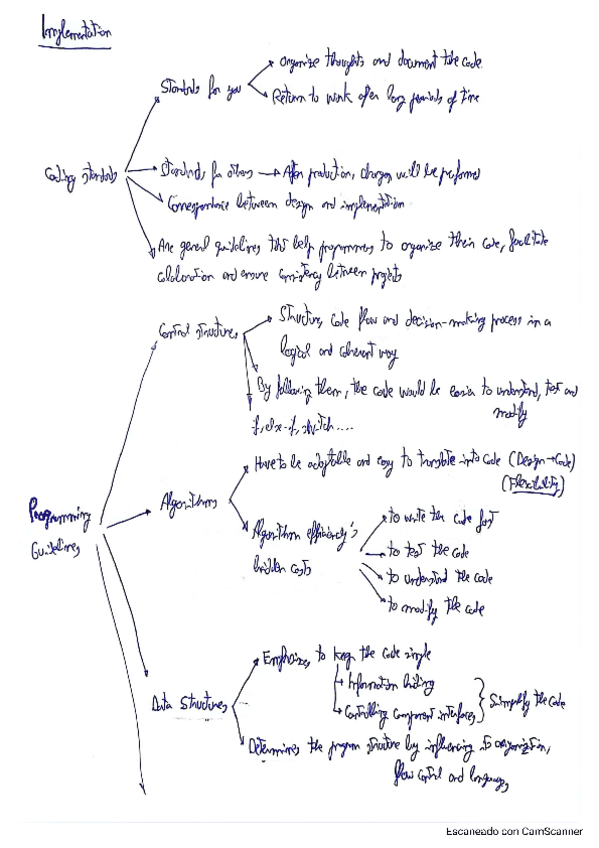 Implementation
Organize thoughts and document the code
Standards for you
Return to work after long periods of time
Coding standards
Standards for others → After production, changes will be performed
Correspondence between design and implementation
Are general guidelines that help programmers to organize their code, facilitate
collaboration and ensure consistency between projects
Control structures
Structure code flow and decision-making process in a
logical and coherent way
By following them, the code would be easier to understand, test and
modify
if, else-if, switch....
Have to be adaptable and easy to translate into code (Design→Code)
(Flexibility)
Algorithms
Programming
Guidelines
Algorithm efficiency's
hidden costs
to write the code fast
to test the code
to understand the code
to modify the code
Emphasizes to keep the code simple
Information hiding
Controlling component interfaces
Simplify the code
Data Structures
Determines the program structure by influencing its organization,
flow control and languages
Escaneado con CamScanner